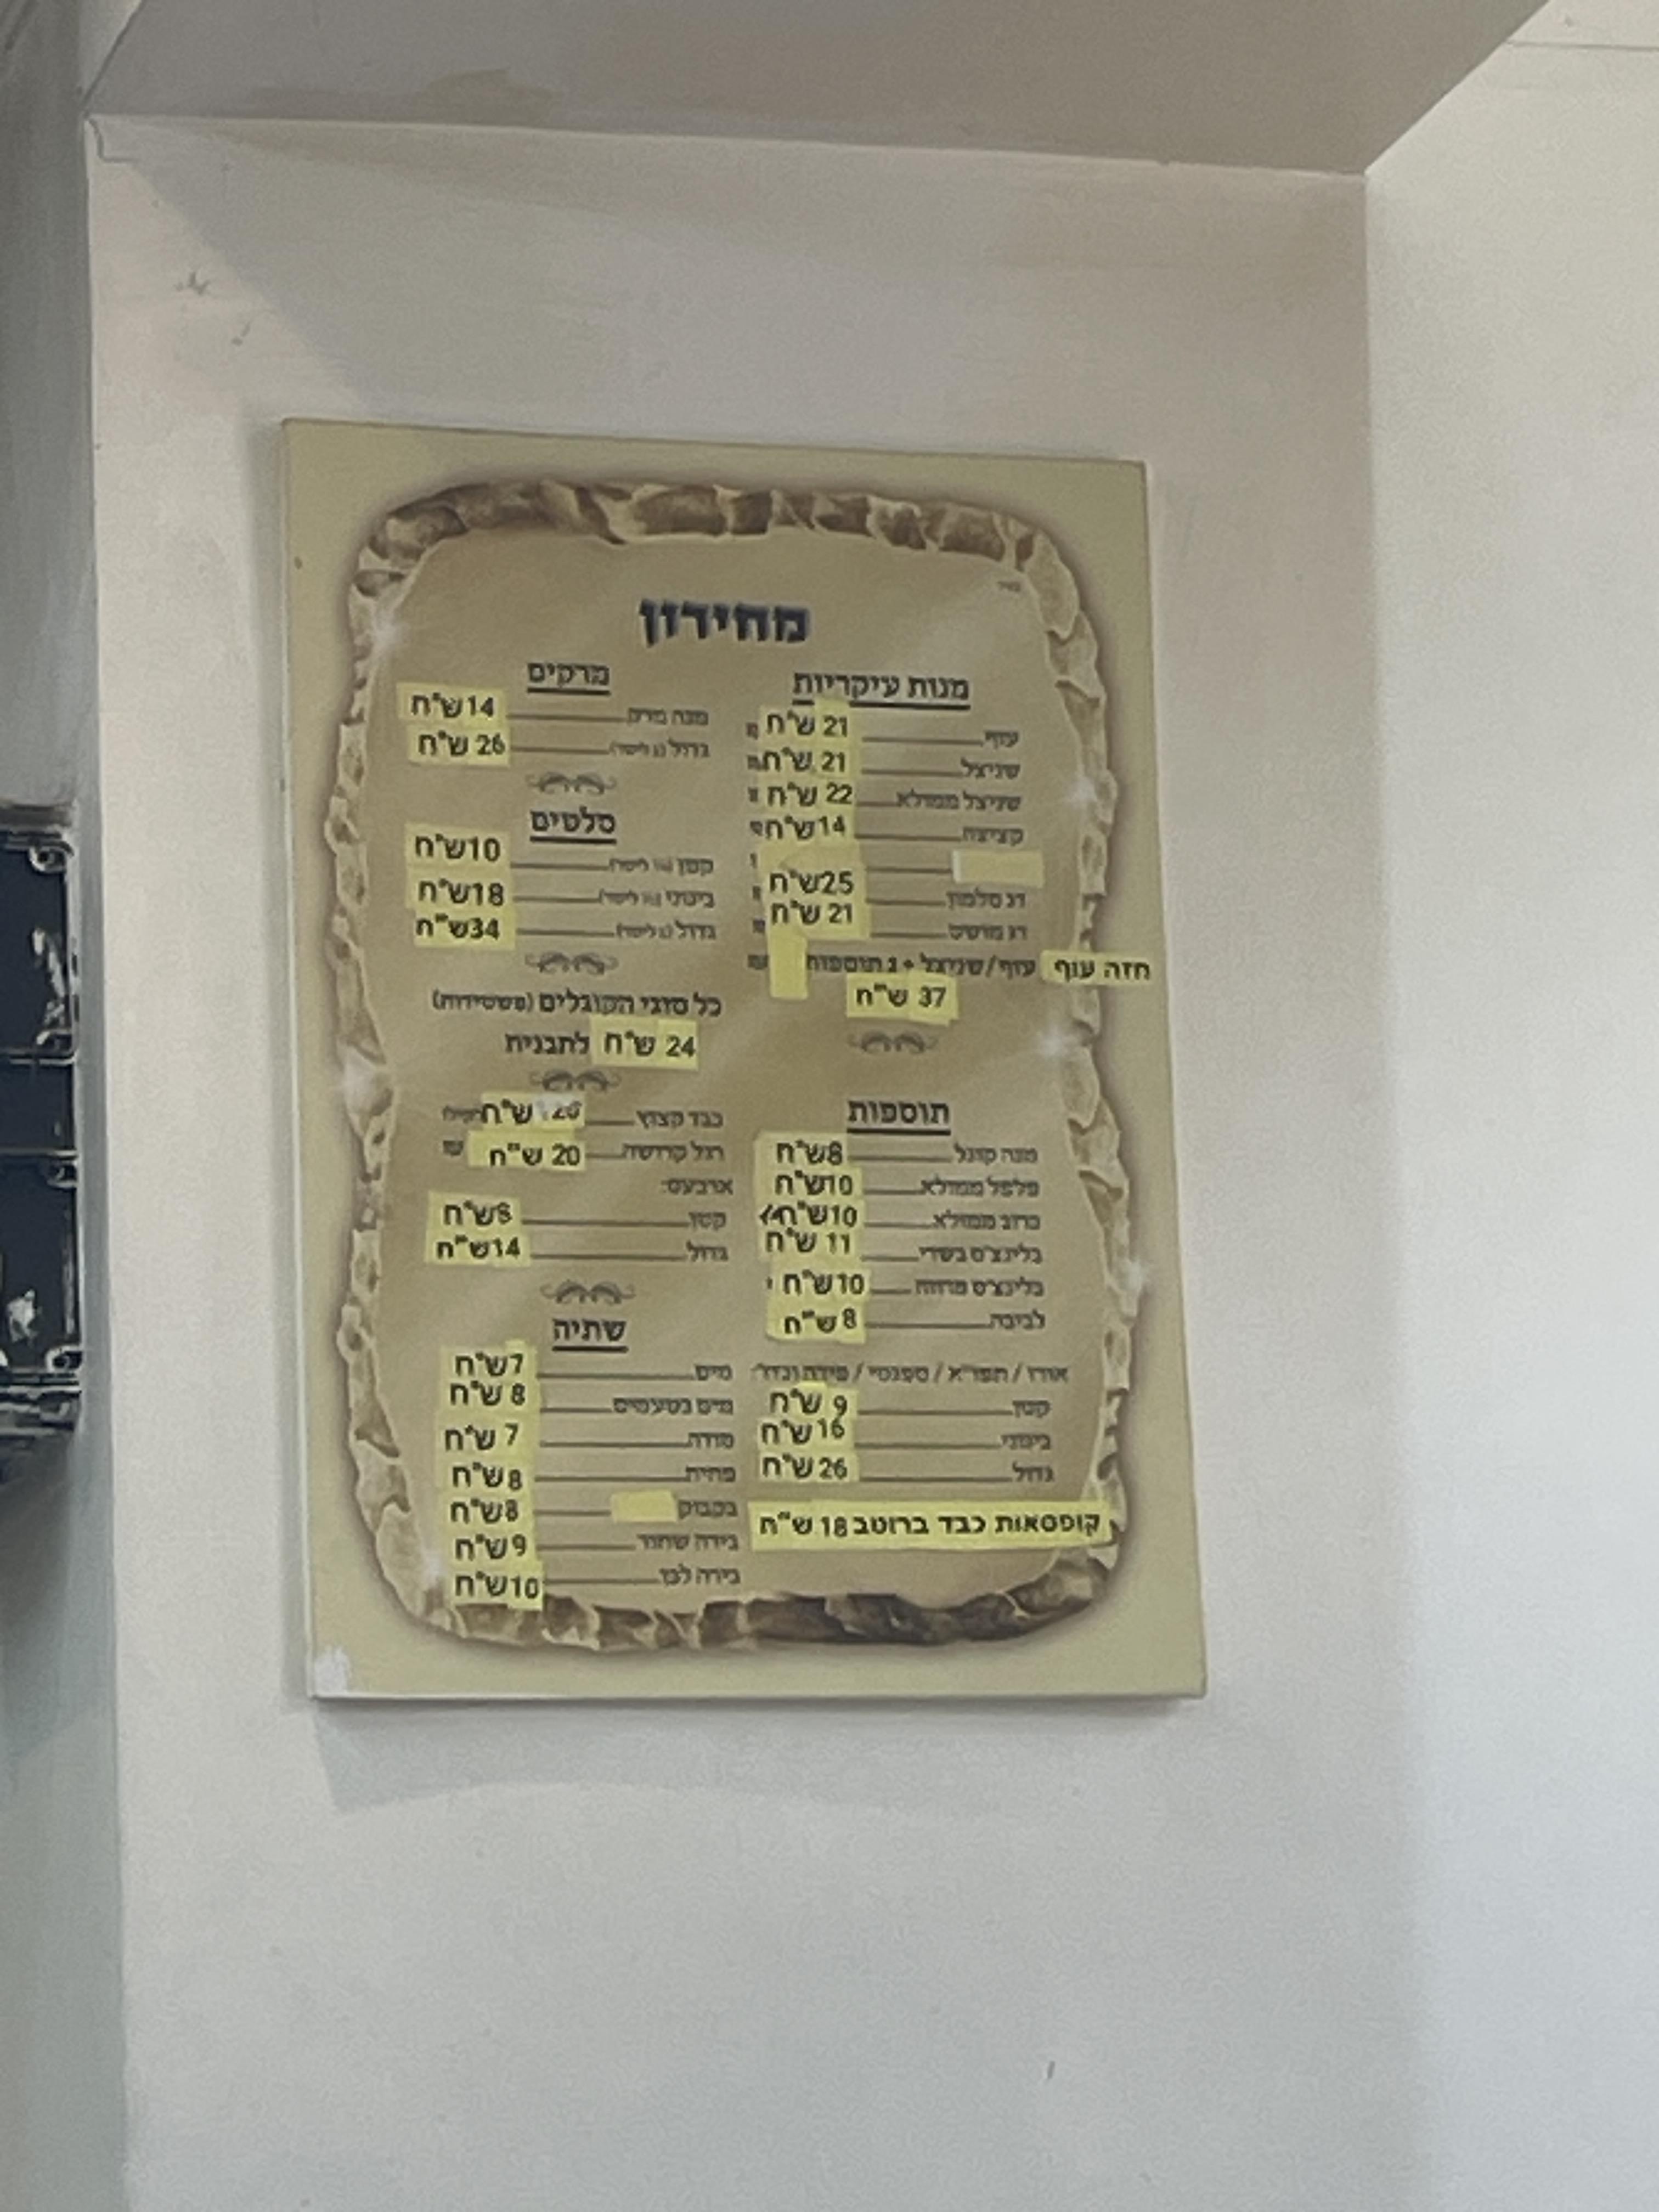 מחירון
מנות עיקריות
עוף 21 ש"ח
שניצל 21 ש"ח
שניצל ממולא 22 ש"ח
קציצה 14 ש"ח
דג סלמון 25 ש"ח
דג מושט 21 ש"ח
חזה עוף עוף/שניצל + 2 תוספות
37 ש"ח
תוספות
מנה קוגל 8 ש"ח
פלפל ממולא 10 ש"ח
כרוב ממולא 10 ש"ח
בלינצ'ס בשרי 11 ש"ח
בלינצ'ס פרווה 10 ש"ח
לביבה 8 ש"ח
אורז / תפו"א / ספגטי / פירה וכדו':
קטן 9 ש"ח
בינוני 16 ש"ח
גדול 26 ש"ח
קופסאות כבד ברוטב 18 ש"ח
מרקים
מנה מרק 14 ש"ח
גדול (1 ליטר) 26 ש"ח
סלטים
קטן 10 ש"ח
בינוני 18 ש"ח
גדול (1 ליטר) 34 ש"ח
כל סוגי הקוגלים (פשטידות)
24 ש"ח לתבנית
כבד קצוץ ש"ח
רגל קרושה 20 ש"ח
ארבעס:
קטן 8 ש"ח
גדול 14 ש"ח
שתיה
מים 7 ש"ח
מים בטעמים 8 ש"ח
סודה 7 ש"ח
פחית 8 ש"ח
בקבוק 8 ש"ח
בירה שחור 9 ש"ח
בירה לבן 10 ש"ח